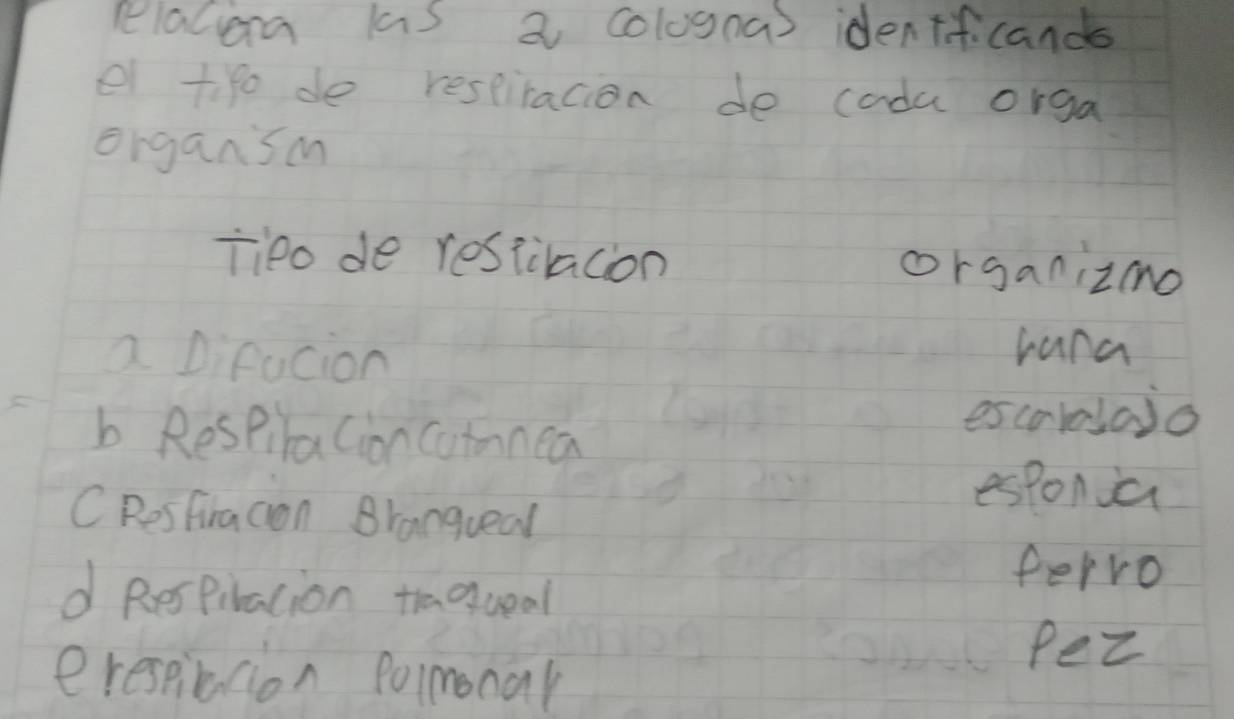 relaciona las 2 colugnas identificando
el tipo de respiracion de cada orga
organism
Tipo de respiracion organizmo
a Difucion rana
b Respiracion cutanea escarabajo
C Respiracion Branqueal esponja
d Respiracion traqueal perro
e respiracion Pulmonar Pez